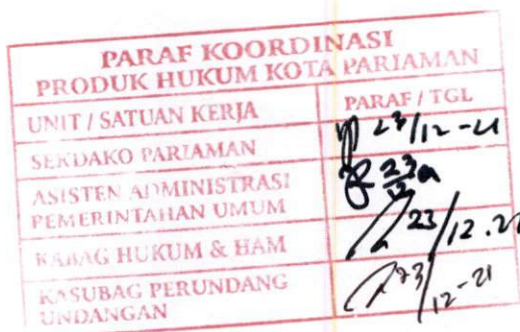 PARAF KOORDINASI
PRODUK HUKUM KOTA PARIAMAN
UNIT / SATUAN KERJA PARAF / TGL
SEKDAKO PARIAMAN 23/12-21
ASISTEN ADMINISTRASI
PEMERINTAHAN UMUM 23/12
KABAG HUKUM & HAM 23/12.21
KASUBAG PERUNDANG
UNDANGAN 23/12-21